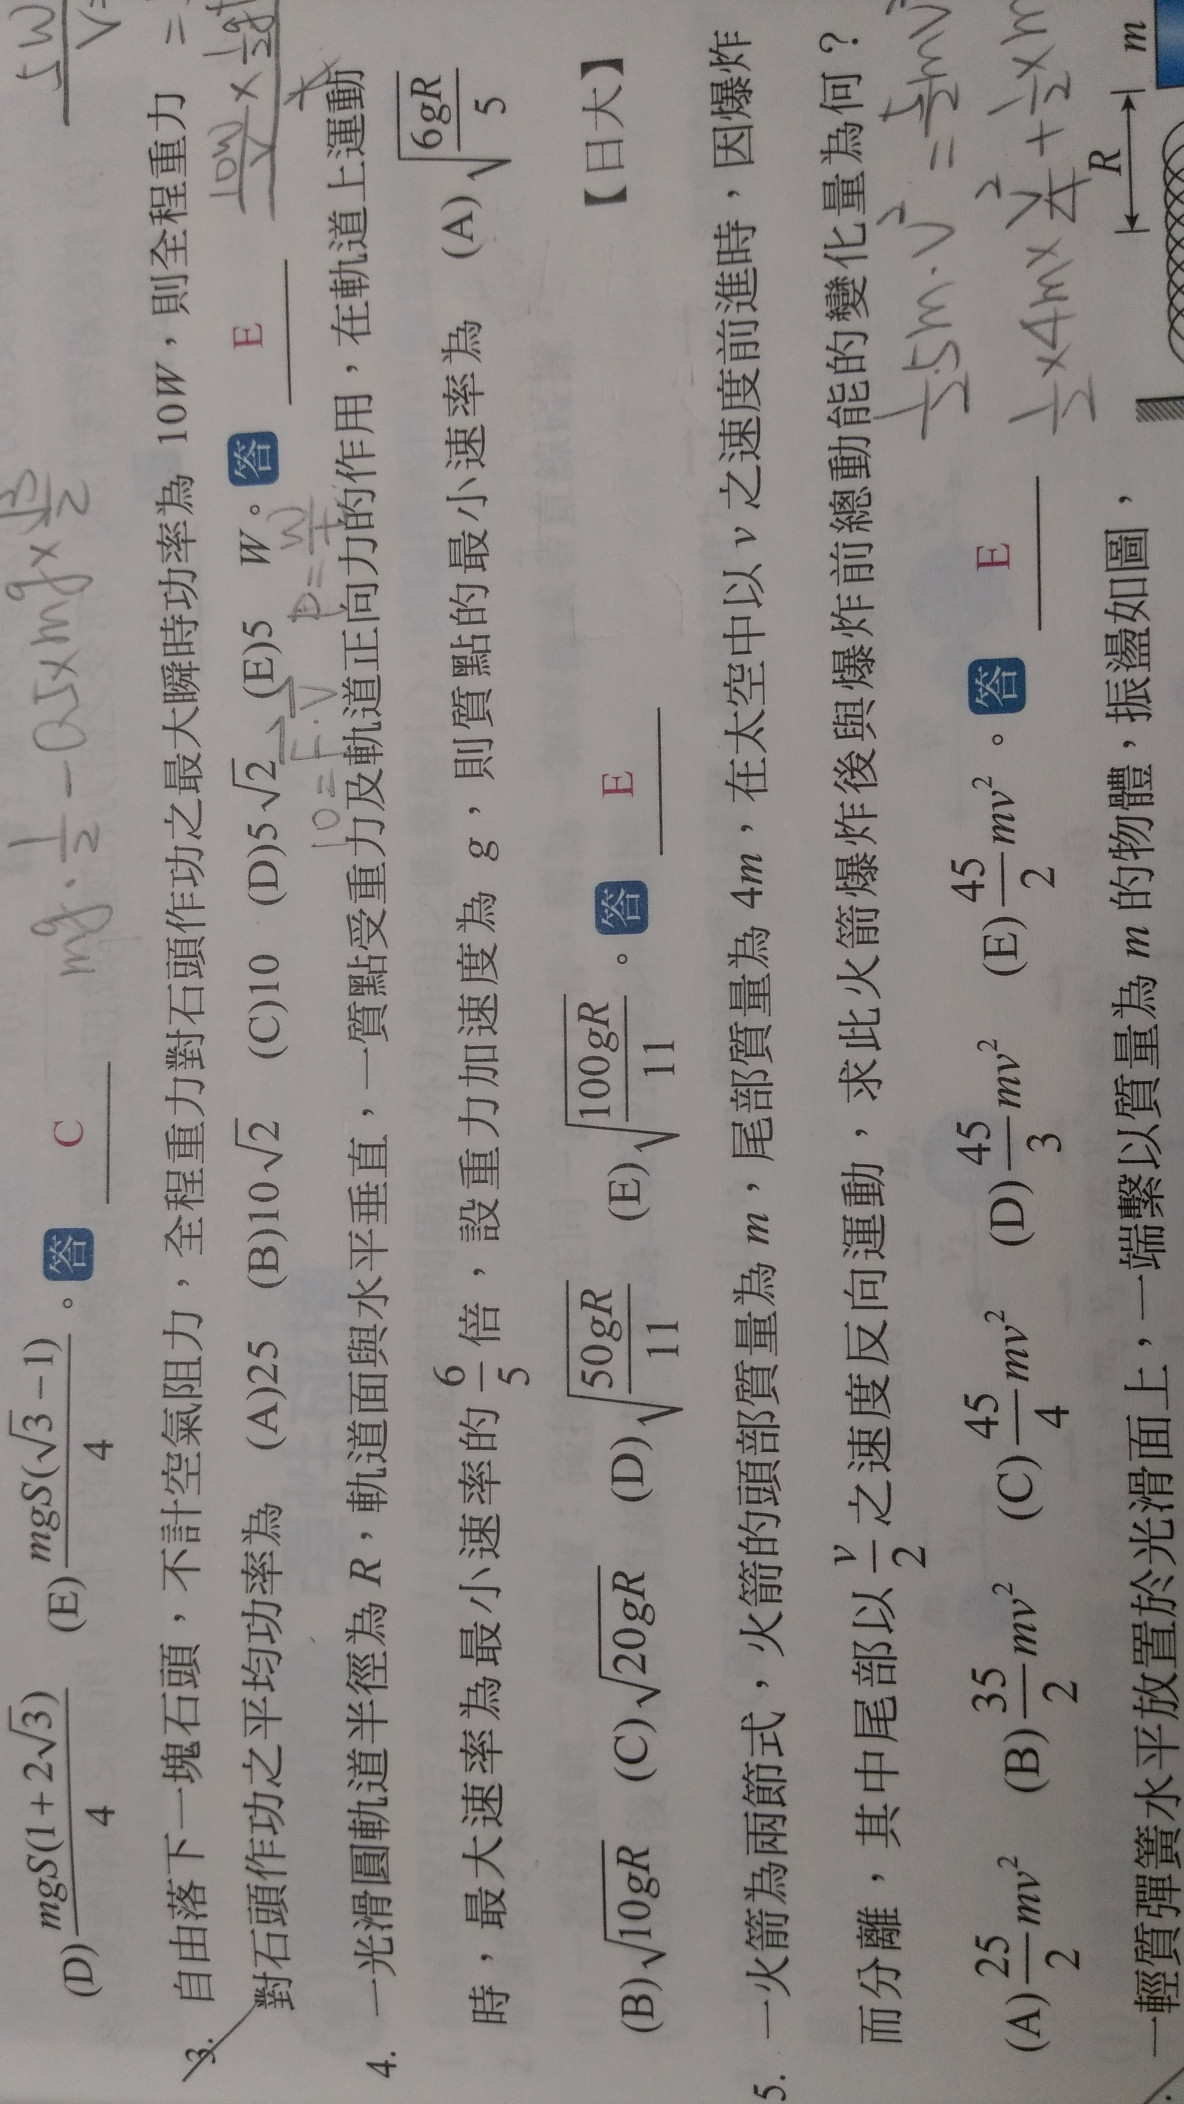 (D) mgS(1+2√3)/4 (E) mgS(√3−1)/4 。答 C
mg·1/2 − 0.5×mg×√3/2
5W
3. 自由落下一塊石頭，不計空氣阻力，全程重力對石頭作功之最大瞬時功率為 10W，則全程重力
對石頭作功之平均功率為 (A)25 (B)10√2 (C)10 (D)5√2 (E)5 W。答 E
10=F·V P=W/t
4. 一光滑圓軌道半徑為 R，軌道面與水平垂直，一質點受重力及軌道正向力的作用，在軌道上運動
時，最大速率為最小速率的 6/5 倍，設重力加速度為 g，則質點的最小速率為 (A)√(6gR/5)
(B)√10gR (C)√20gR (D)√(50gR/11) (E)√(100gR/11) 。答 E 【日大】
5. 一火箭為兩節式，火箭的頭部質量為 m，尾部質量為 4m，在太空中以 v 之速度前進時，因爆炸
而分離，其中尾部以 v/2 之速度反向運動，求此火箭爆炸後與爆炸前總動能的變化量為何？
1/2·5m·V² = 5/2mV²
(A)25/2 mv² (B)35/2 mv² (C)45/4 mv² (D)45/3 mv² (E)45/2 mv² 。答 E
1/2×4m×V²/4+1/2×m
一輕質彈簧水平放置於光滑面上，一端繫以質量為 m 的物體，振盪如圖，
R
m